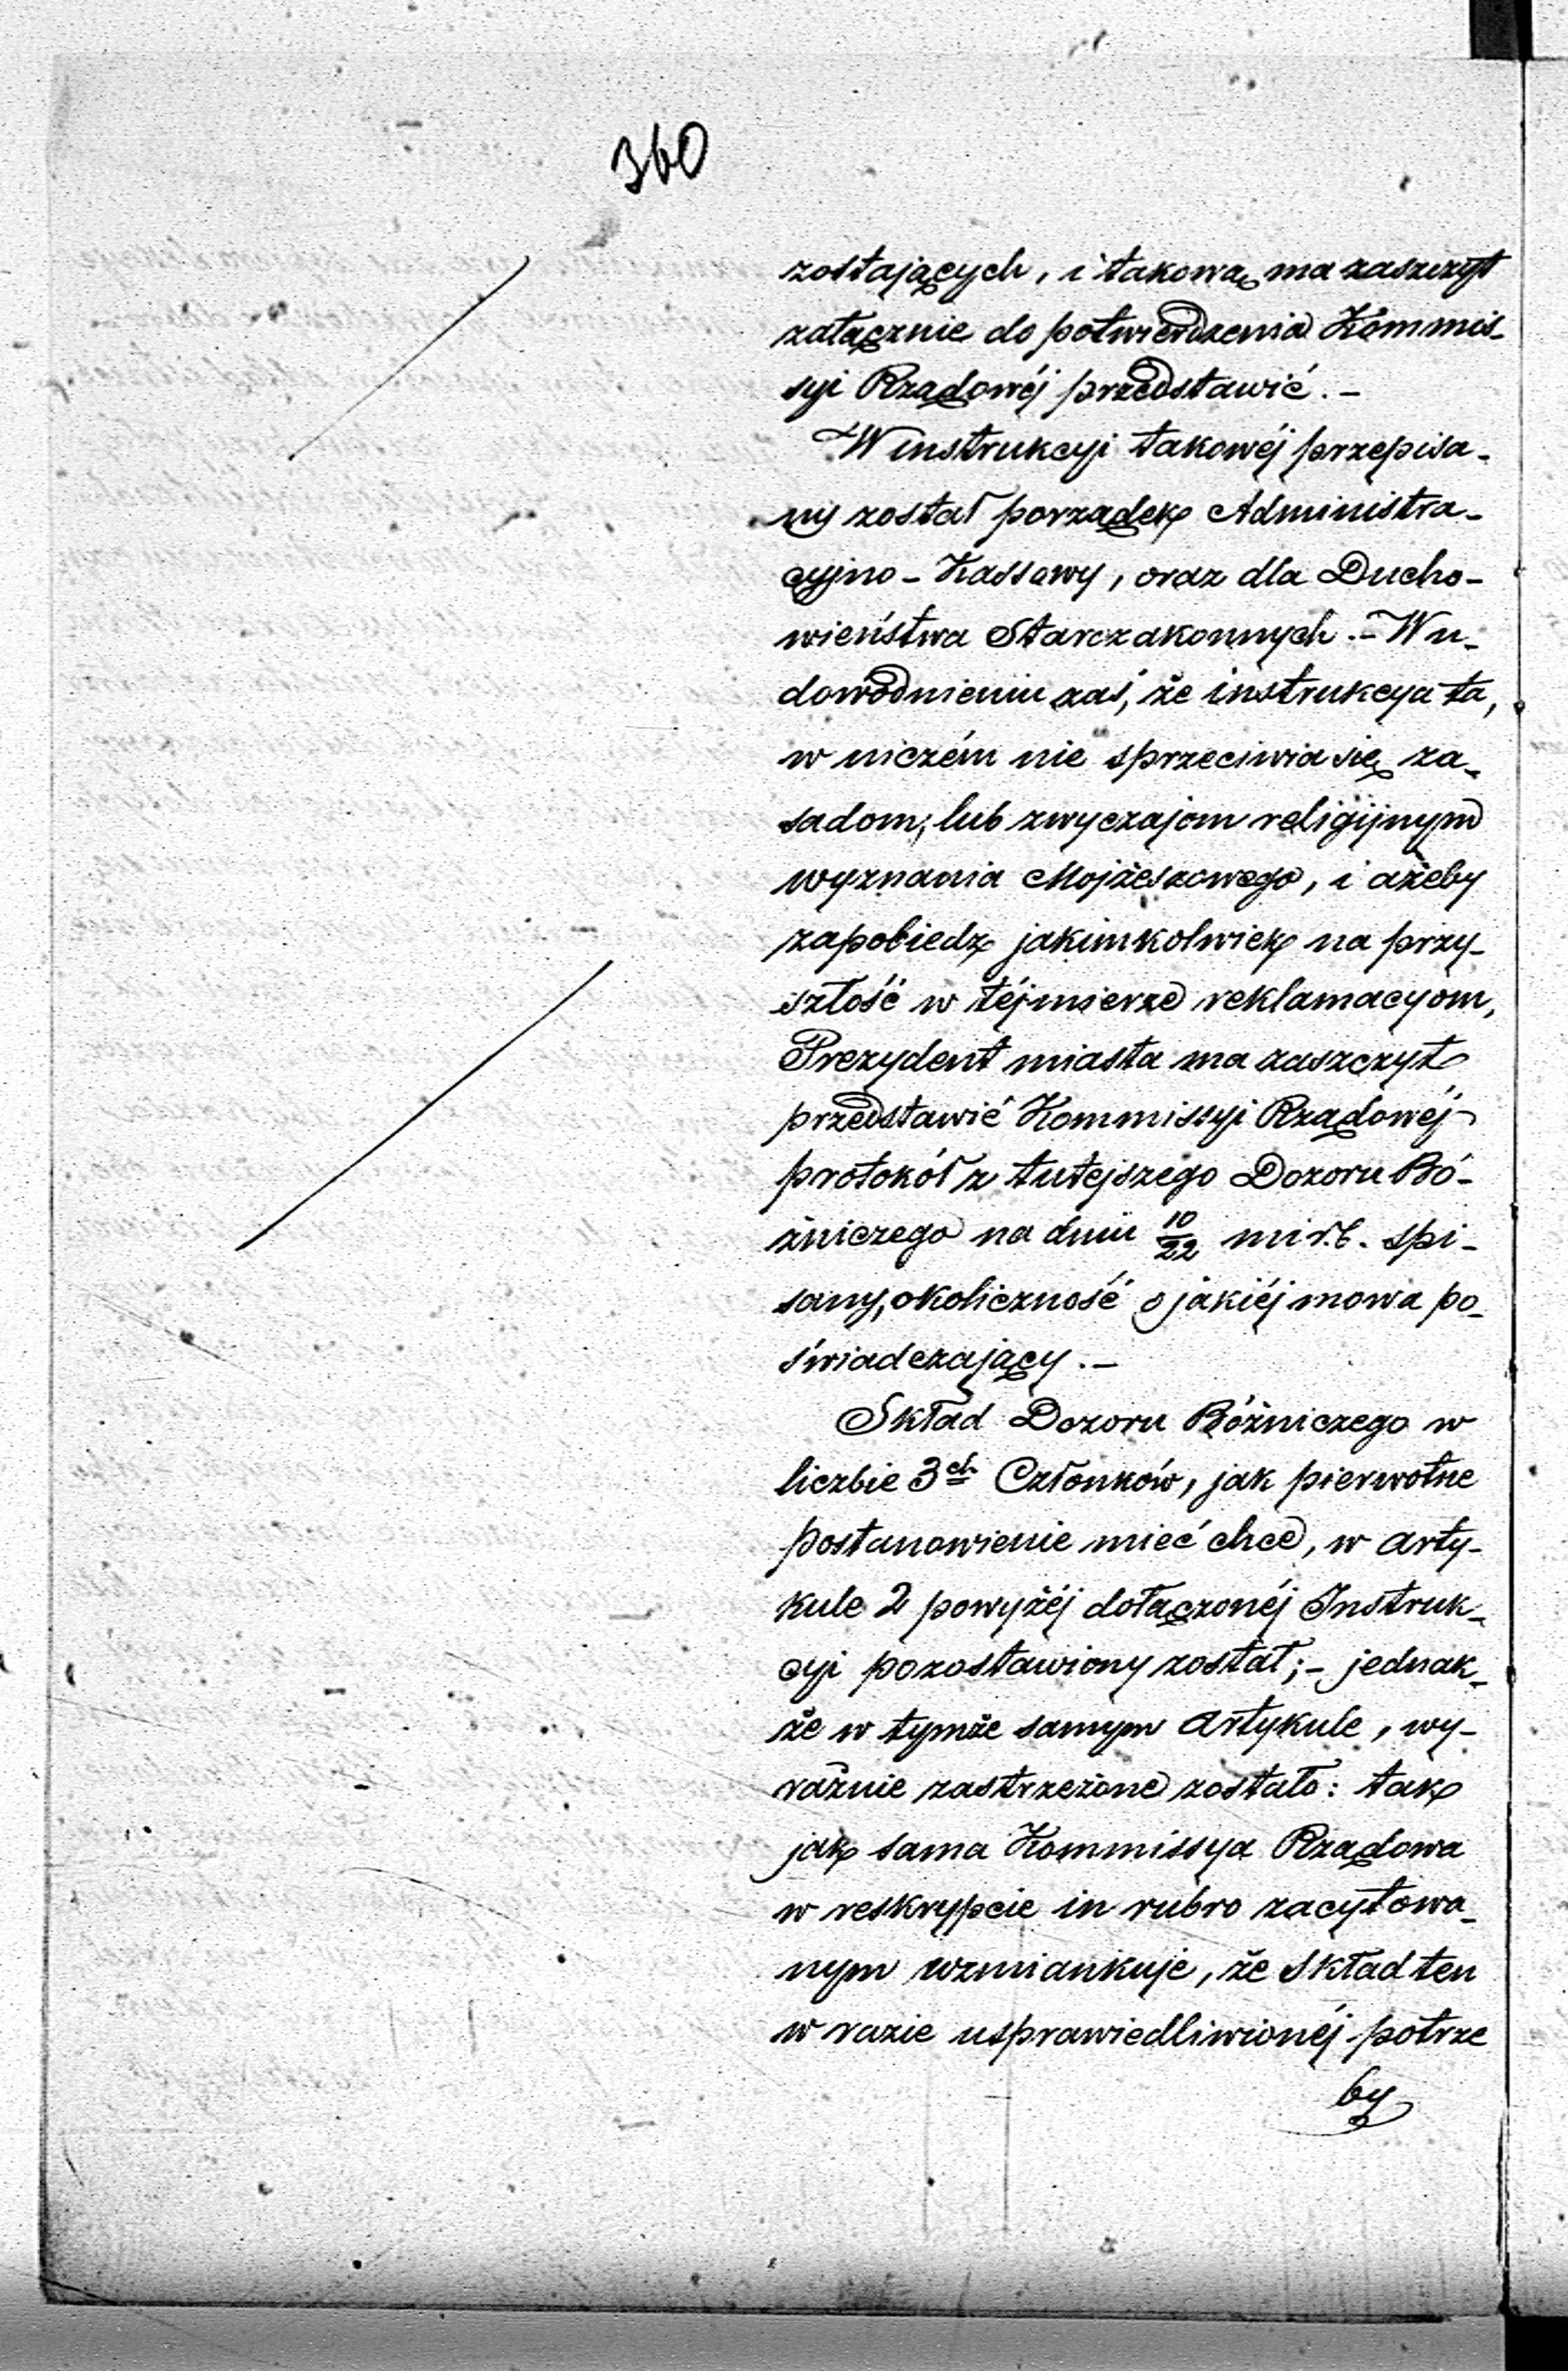 360
zostających, i takową ma zaszczyt
załącznie do potwierdzenia Kommis-
syi Rządowéj przedstawić. –
W instrukcyi takowéj przepisa-
ny został porządek Administra-
cyjno – Kassowy, oraz dla Ducho-
wieństwa Starozakonnych. – W u-
dowodnieniu zaś, że instrukcya ta,
w niczém nie sprzeciwia się za-
sadom, lub zwyczajom religijnym
wyznania Mojżeszowego, i ażeby
zapobiedz jakimkolwiek na przy-
szłość w téj mierze reklamacyom,
Prezydent miasta ma zaszczyt
przedstawić Kommissyi Rządowéj
protokół z tutejszego Dozoru Bó-
żniczego na dniu 10/22 m i r. b. spi-
sany, okoliczność o jakiéj mowa po-
świadczający. –
Skład Dozoru Bóżniczego w
liczbie 3ch Członków, jak pierwotne
postanowienie mieć chce, w arty-
kule 2 powyżéj dołączonéj Instruk-
cyi pozostawiony został; – jednak-
że w tymże samym artykule, wy-
raźnie zastrzeżone zostało: tak
jak sama Kommissya Rządowa
w reskrypcie in rubro zacytowa-
nym wzmiankuje, że skład ten
w razie usprawiedliwionéj potrze
by